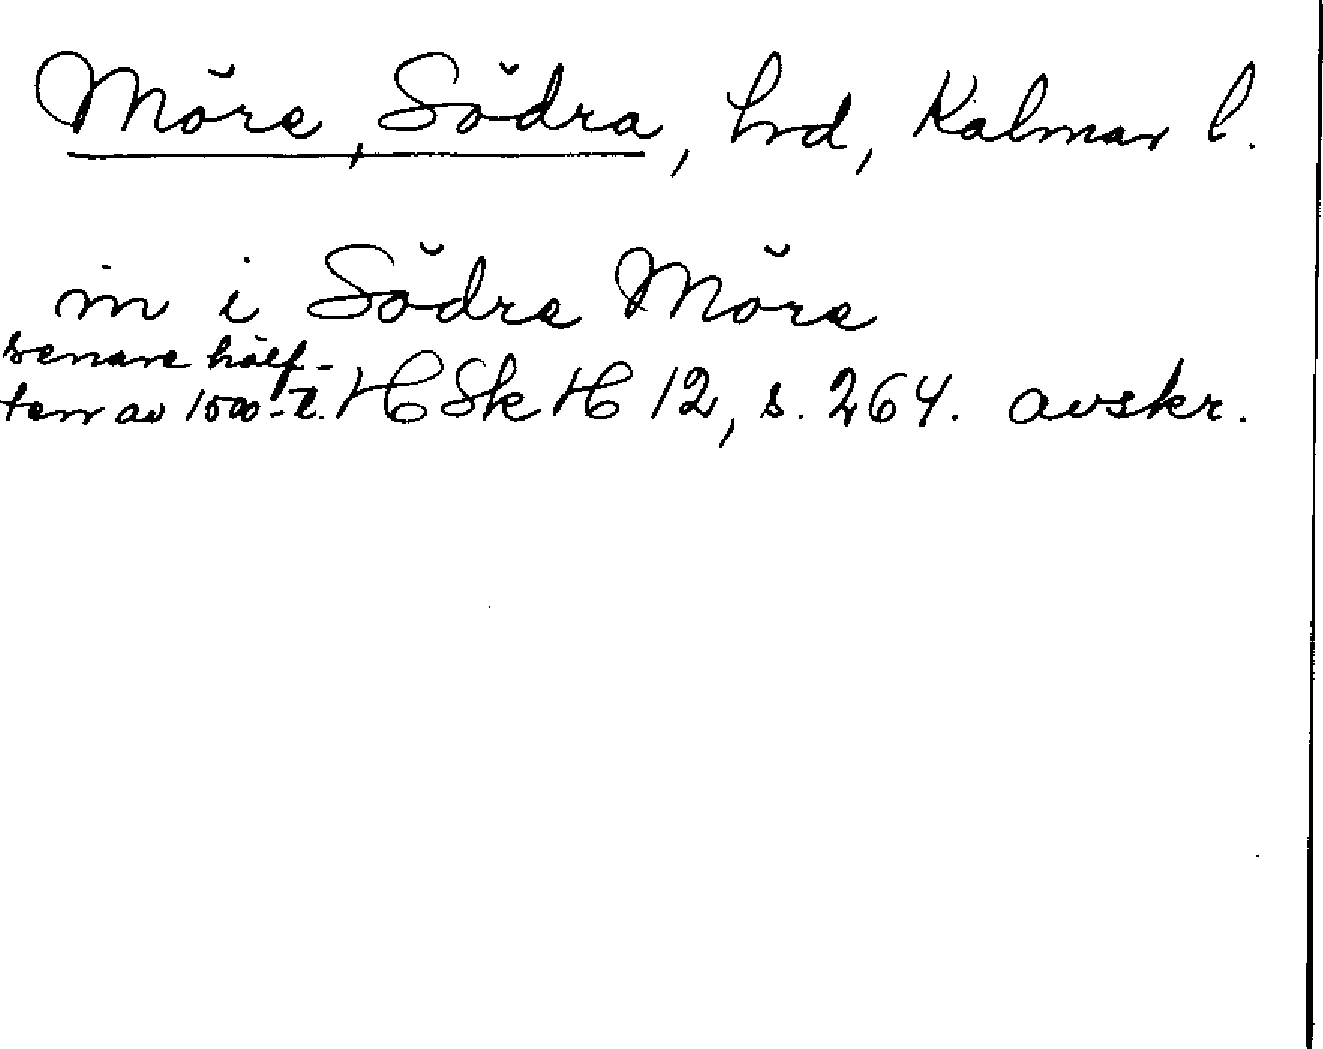 Möre, Södra, hrd, Kalmar l.
in i Södre Möre
senare hälf-
ten av 1500-t. HSkH 12, s. 264. avskr.